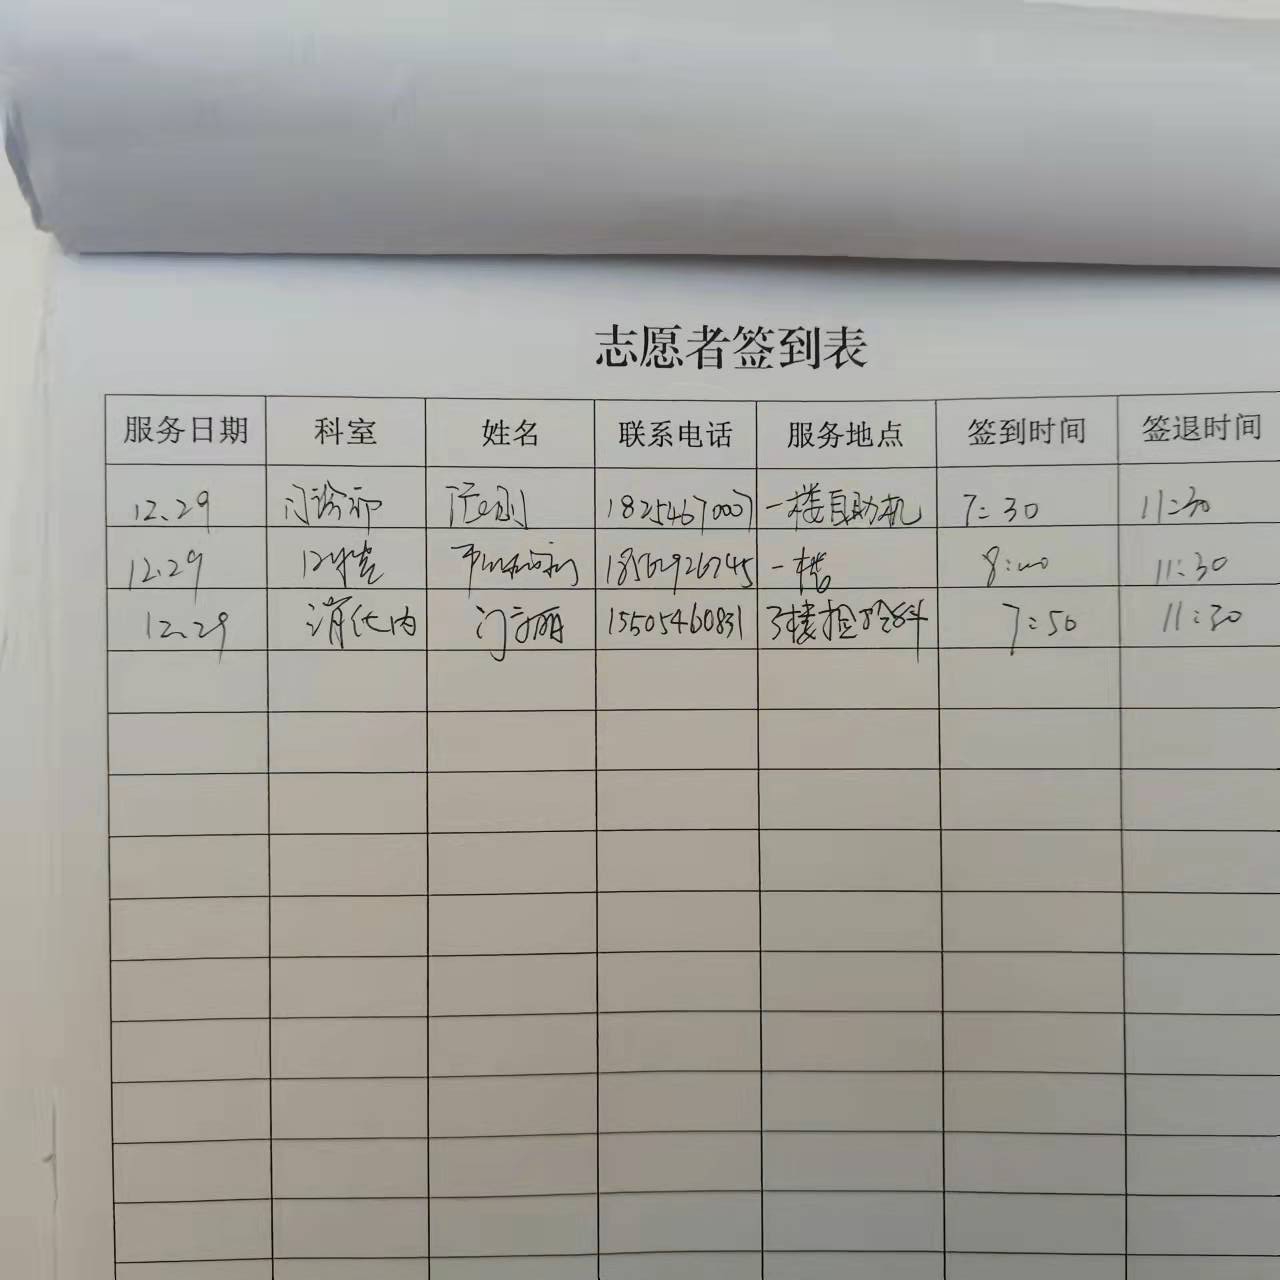 志愿者签到表
服务日期 科室 姓名 联系电话 服务地点 签到时间 签退时间
12.29 门诊部 18254670007 一楼自助机 7:30 11:30
12.29 一楼 8:00 11:30
12.29 消化内 15505460831 3楼检验科 7:50 11:30